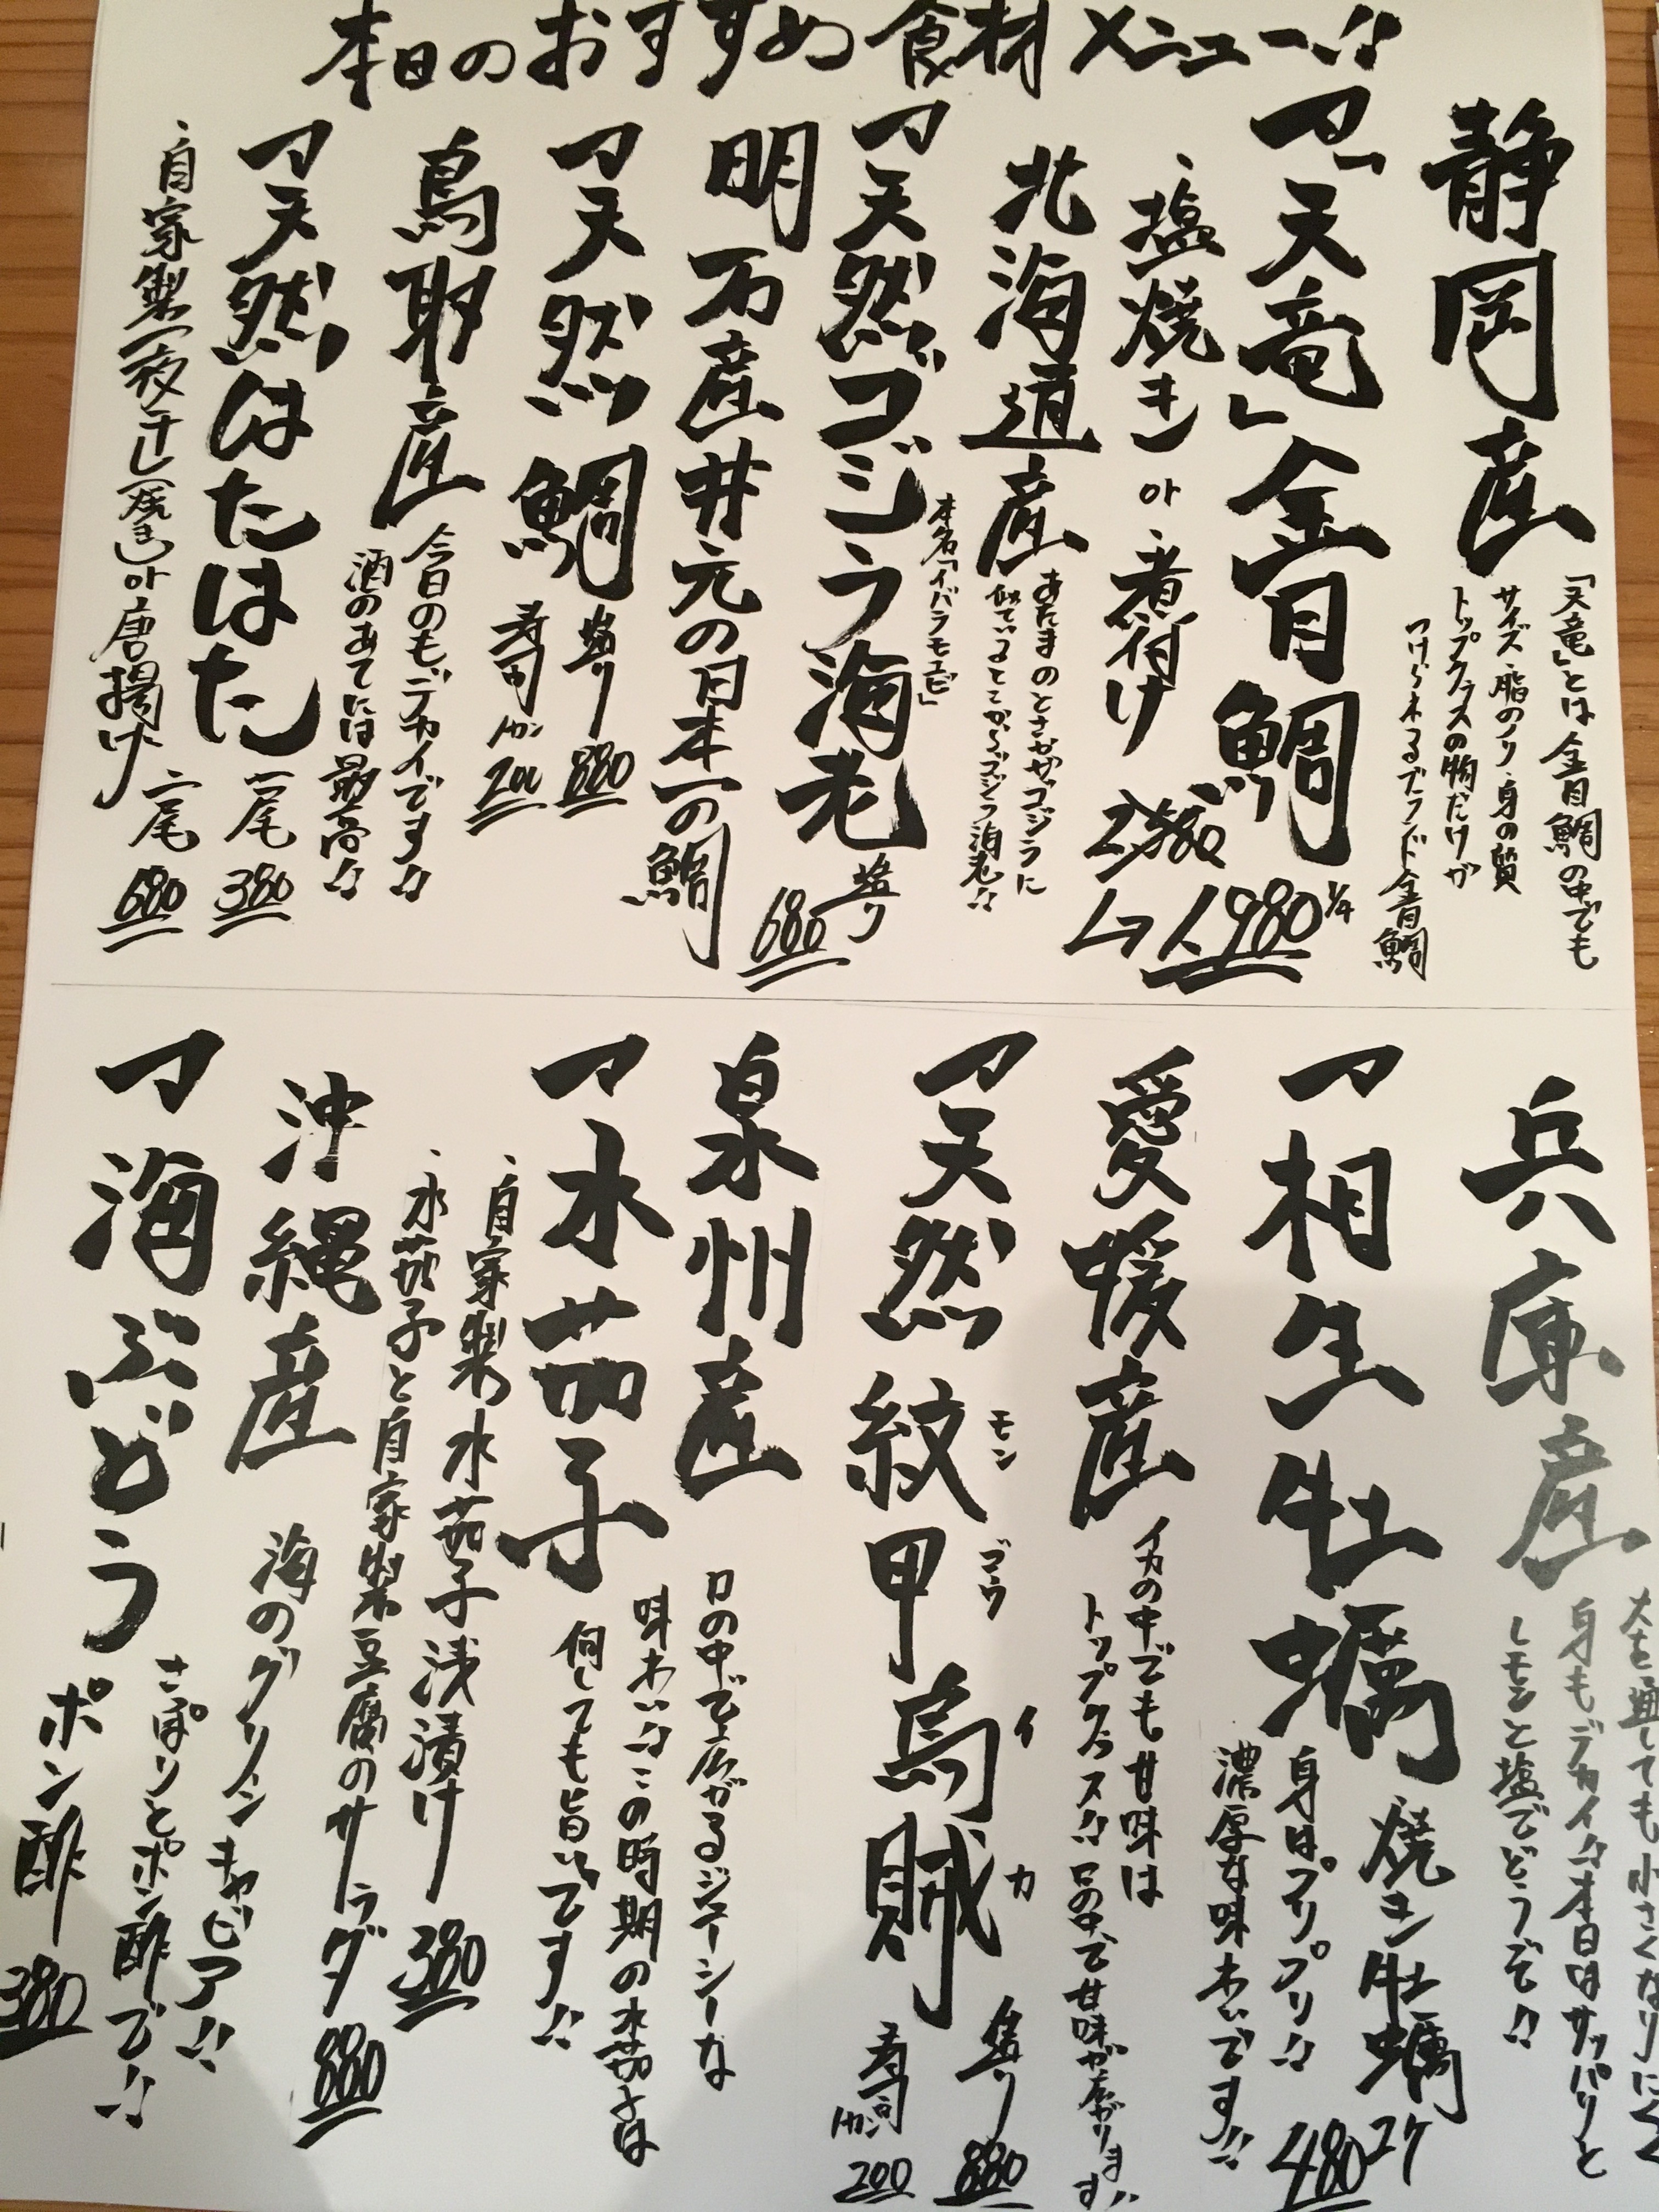 本日のおすすめ食材メニュー!!
静岡産
「天竜」とは金目鯛の中でも
サイズ・脂のノリ・身の質
トップクラスの物だけが
つけられるブランド金目鯛
「天竜」金目鯛
1/4
1,980
・塩焼き or ・煮付け
北海道産
あたまのとさかがゴジラに
似ているとこからゴジラ海老!!
本名「イバラモエビ」
天然ゴジラ海老
造り
680
明石産 井元の日本一の鯛
天然鯛
造り 880
寿司 1カン 200
鳥取産
今日のもデカイです!!
酒のあてには最高!!
天然はたはた
一尾 380
・自家製一夜干し(焼き) or 唐揚げ
二尾 680
兵庫産
火を通しても小さくなりにくく
身もデカイ!!本日はサッパリと
レモンと塩でどうぞ!!
相生牡蠣
焼き牡蠣
1コ 480
身はプリプリ!!
濃厚な味わいです!!
愛媛産
イカの中でも甘味は
トップクラス!!口の中で甘味が広がります!!
天然紋甲烏賊
モンゴウイカ
造り 880
寿司 1カン 200
泉州産
口の中で広がるジューシーな
味わい!!この時期の水茄子は
何しても旨いです!!
水茄子
・自家製水茄子浅漬け 380
・水茄子と自家製豆腐のサラダ 880
沖縄産
海のグリーンキャビア!!
さっぱりとポン酢で!!
海ぶどう
ポン酢 380